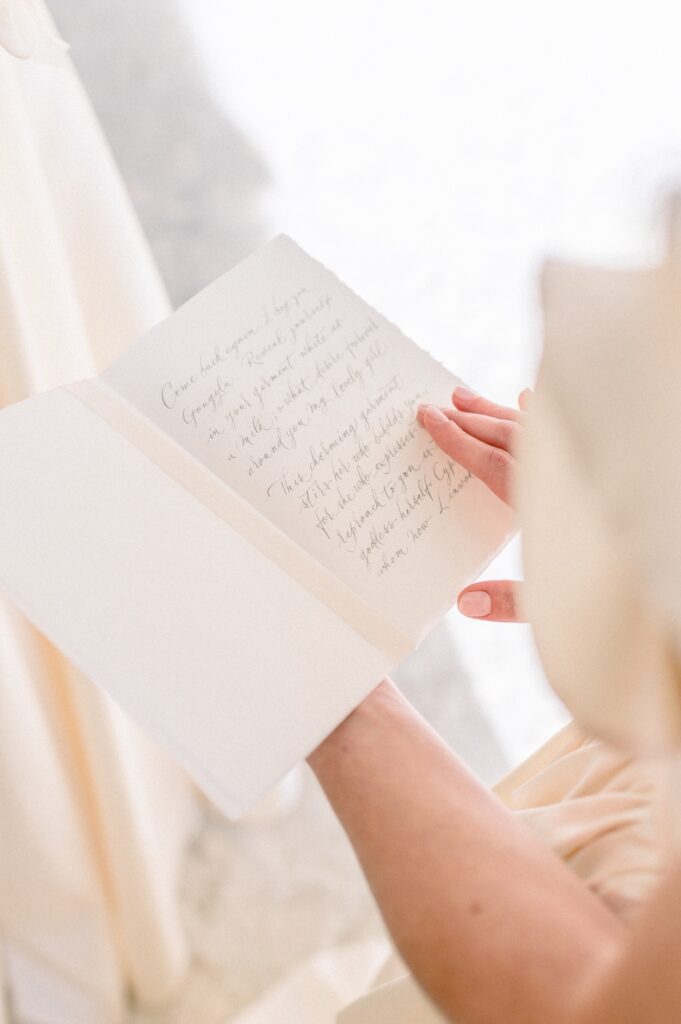 Come back again, I beg you
Gongyla. Reveal yourself
in your garment white as
a milk, what desire, forever
around you my lovely girl
This charming garment
stirs her who beholds you,
for she who expresses
reproach to you is
goddess herself, Cyp
whom now I